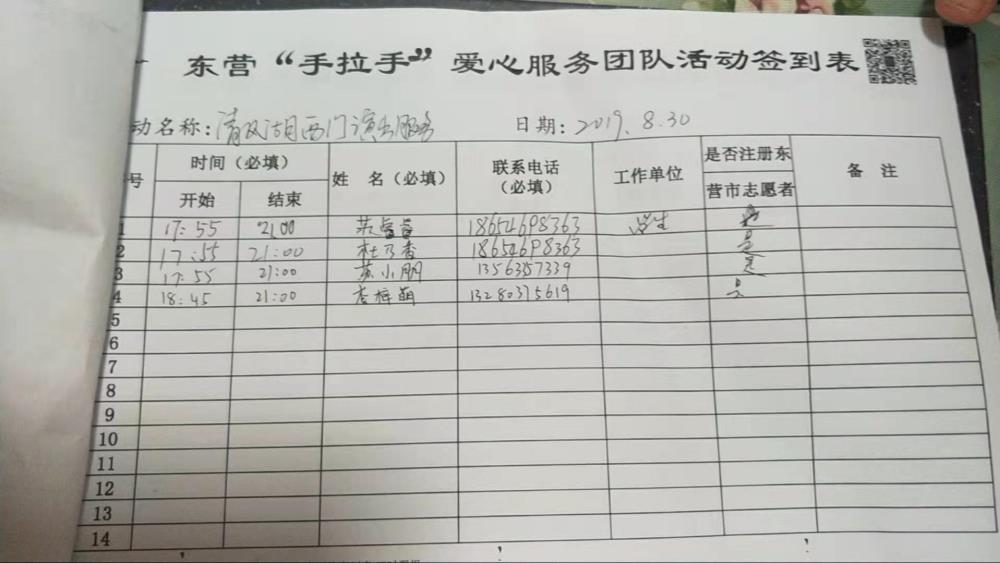 东营“手拉手”爱心服务团队活动签到表
动名称：清风湖西门演出服务 日期：2019.8.30
号 时间（必填） 姓 名（必填） 联系电话（必填） 工作单位 是否注册东营市志愿者 备 注
开始 结束
1 17:55 21:00 18654698363 学生 是
2 17:55 21:00 杜乃香 18654698363 是
3 17:55 21:00 苏小朋 13563357339 是
4 18:45 21:00 李梓萌 13280375619 是
5
6
7
8
9
10
11
12
13
14